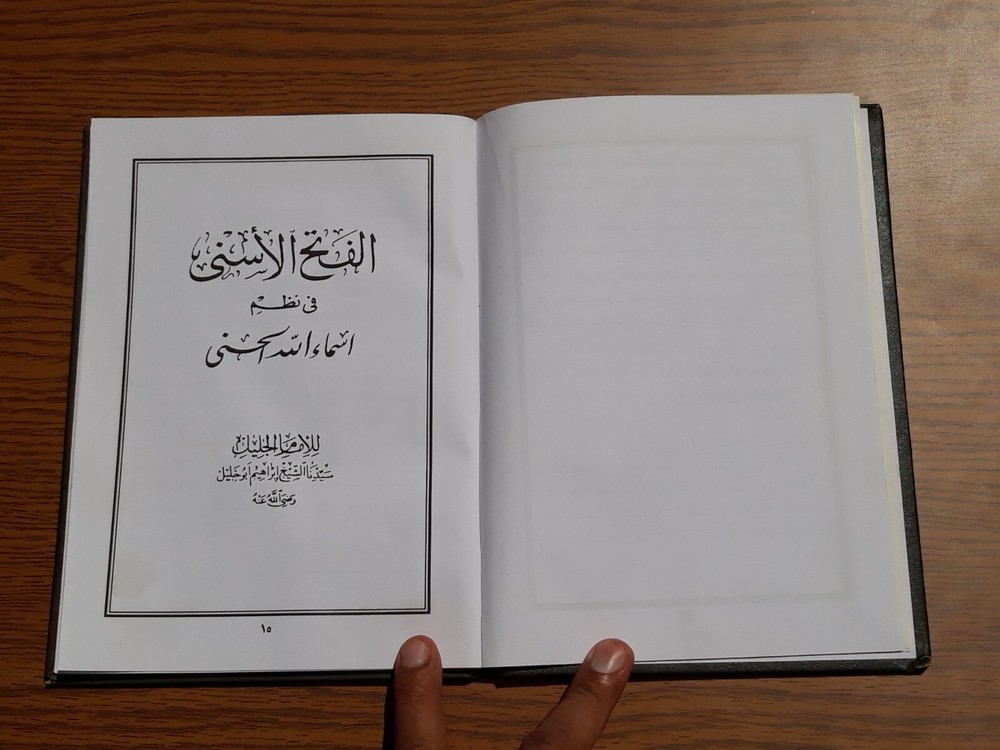 الفَتح الأسْنى
فى نظْمِ
اسماء اللّه الحسنى
للإمام الجليل
سَيّدنَا الشّيخ إبْراهِيم أبو خليْل
رَضِيَ اللَّهُ عَنهُ
١٥